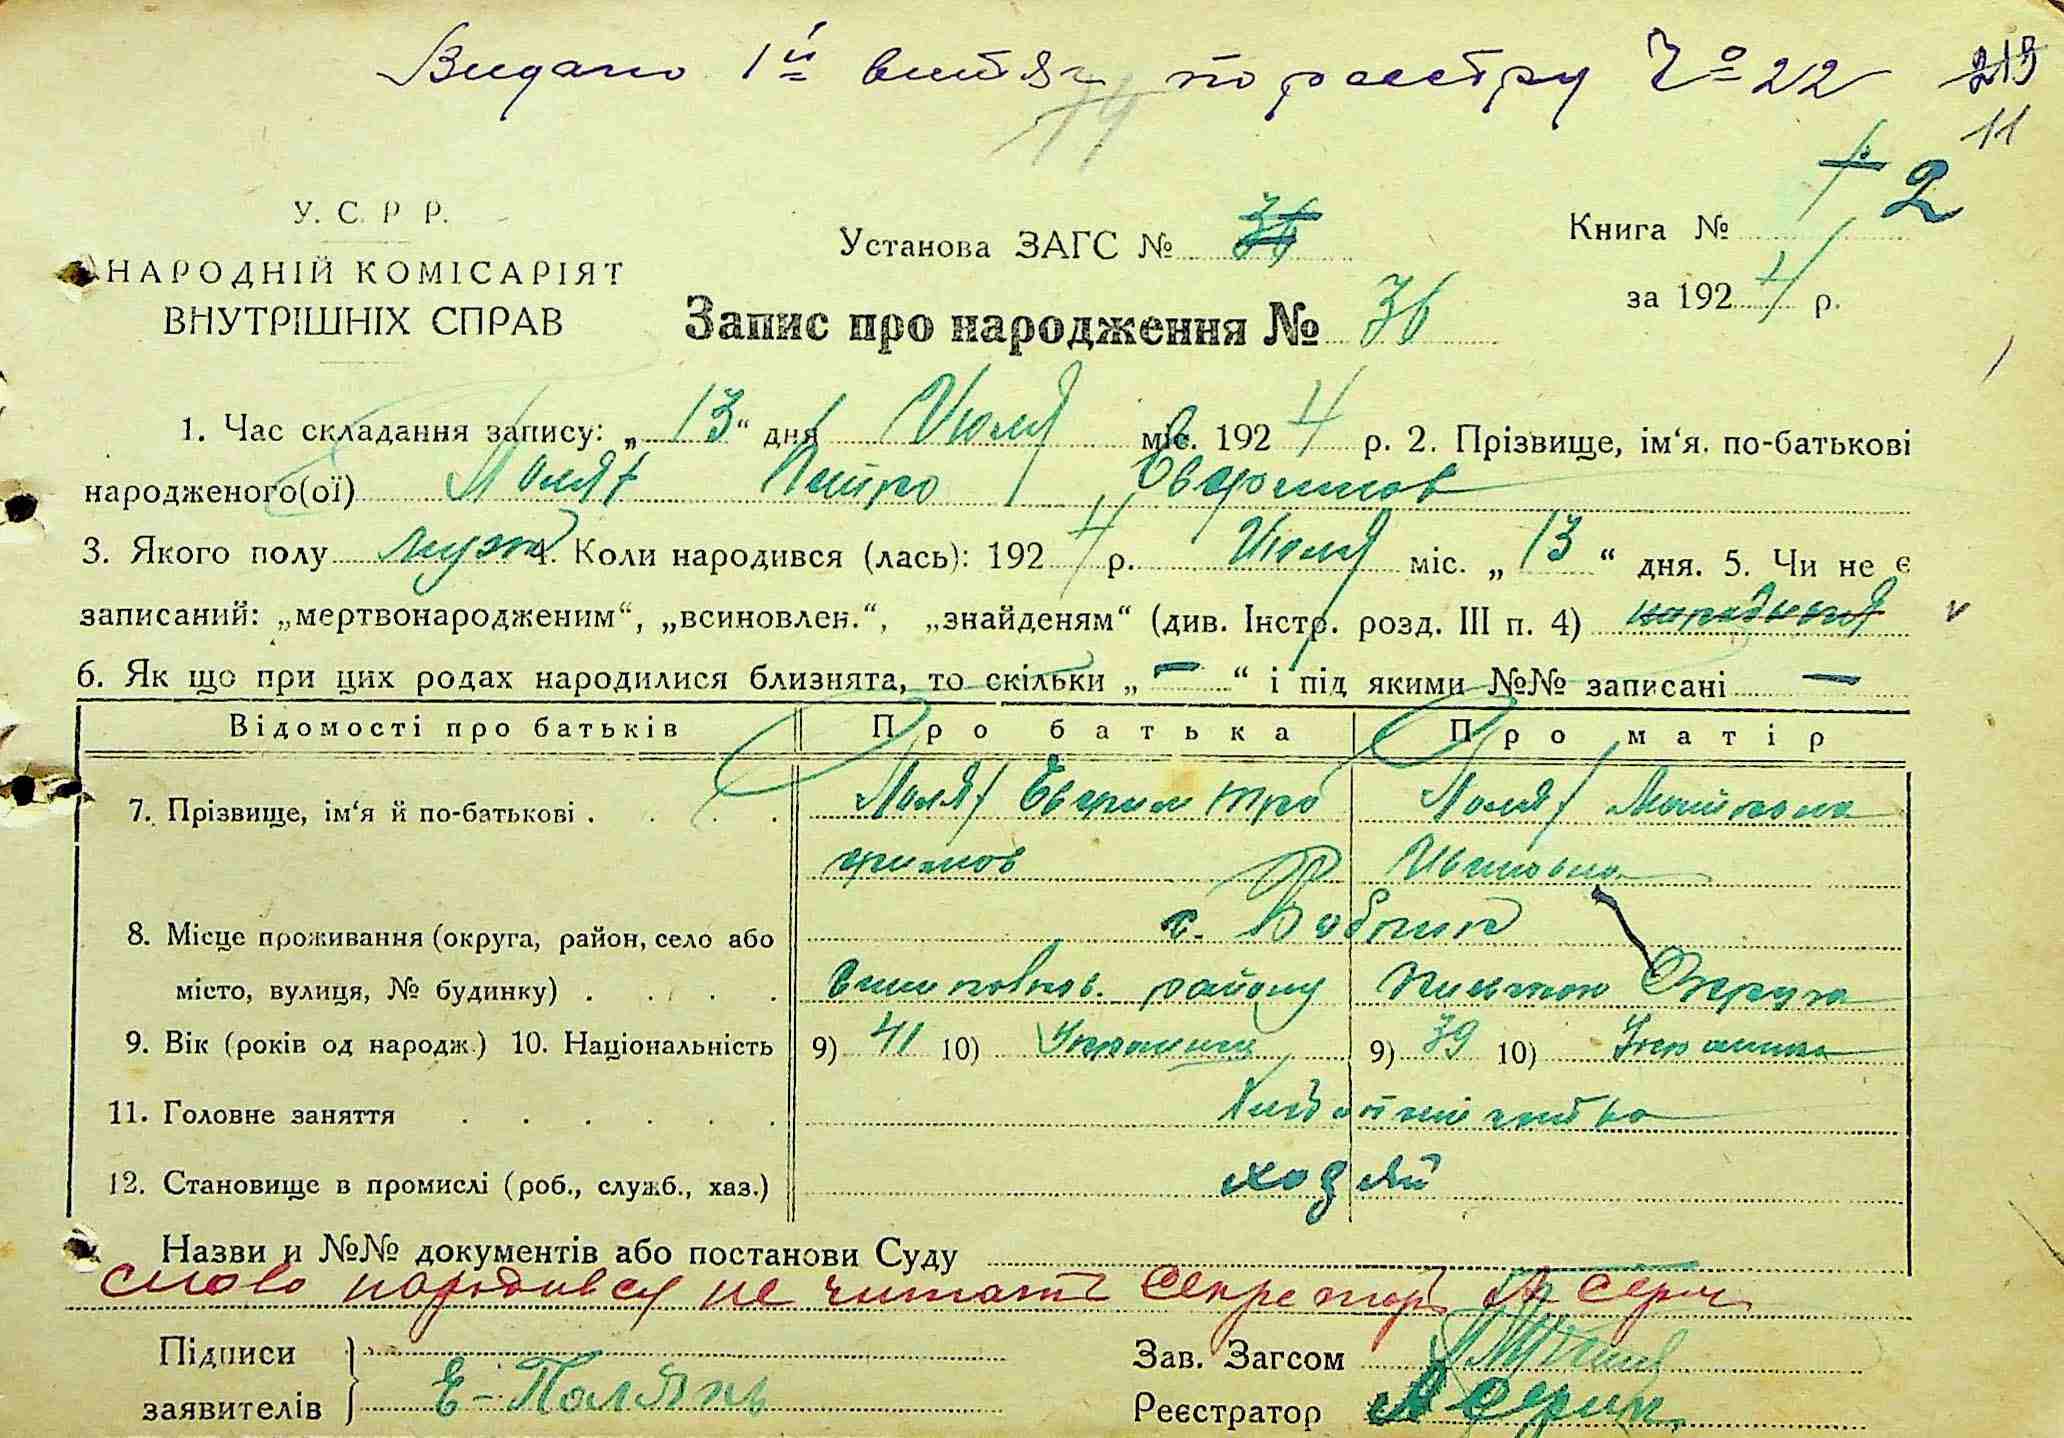 Видано 1й витяг по реєстру Ч° 22 213
11
14
У. С. Р. Р.
НАРОДНІЙ КОМІСАРІЯТ
ВНУТРІШНІХ СПРАВ
Установа ЗАГС № 36
Книга № 2
за 1924 р.
Запис про народження № 36
1. Час складання запису: „13“ дня Июля міс. 1924 р. 2. Прізвище, ім‘я. по-батькові
народженого(ої) Поля Евфимов
3. Якого полу муж 4. Коли народився (лась): 1924 р. Июля міс. „13“ дня. 5. Чи не є
записаний: „мертвонародженим“, „всиновлен.“, „знайденям“ (див. Інстр. розд. III п. 4)
6. Як що при цих родах народилися близнята, то скільки „—“ і під якими №№ записані —
Відомості про батьків Про батька Про матір
7. Прізвище, ім‘я й по-батькові . . . . Евфим Тро
фимов Ивановна
8. Місце проживання (округа, район, село або с. Бобрик
місто, вулиця, № будинку) . . . . району Округа
9. Вік (років од народж.) 10. Національність 9) 41 10) Украинец 9) 39 10) Украинка
11. Головне заняття . . . . . .
12. Становище в промислі (роб., служб., хаз.) хозяй
Назви и №№ документів або постанови Суду
слово народився не читать Секретар
Підписи
заявителів Е-Полянь
Зав. Загсом
Реєстратор